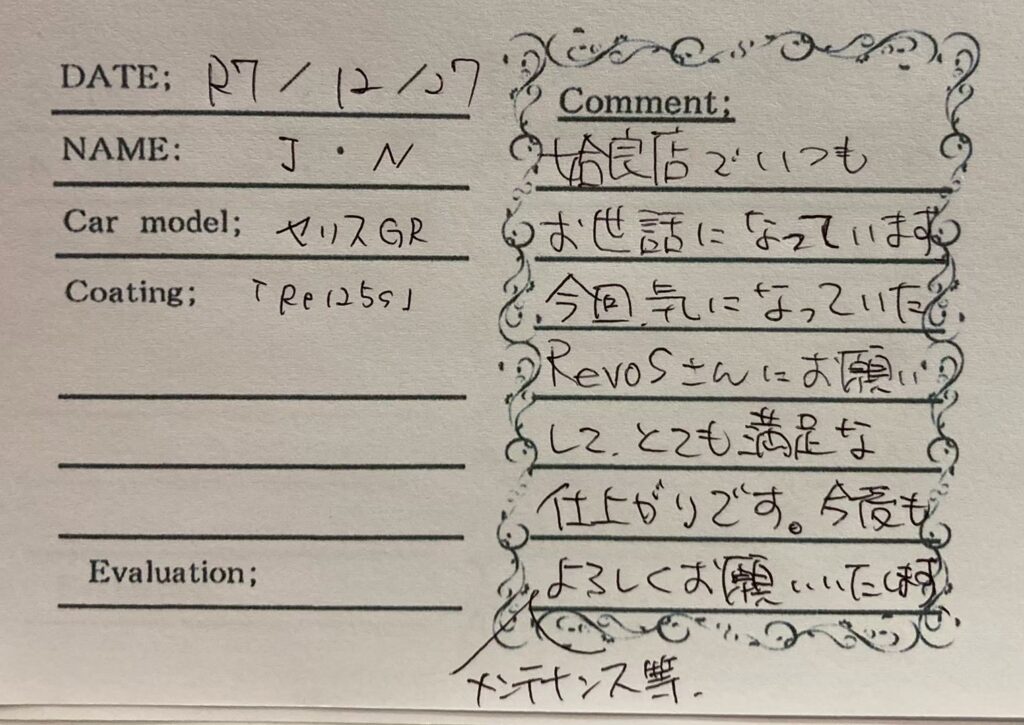 DATE; R7/12/27
NAME: J・N
Car model; ヤリスGR
Coating; 「Re125s」
Evaluation;
Comment;
姶良店でいつも
お世話になっています
今回、気になっていた
RevoSさんにお願い
して、とても満足な
仕上がりです。今後も
よろしくお願いいたします
メンテナンス等.